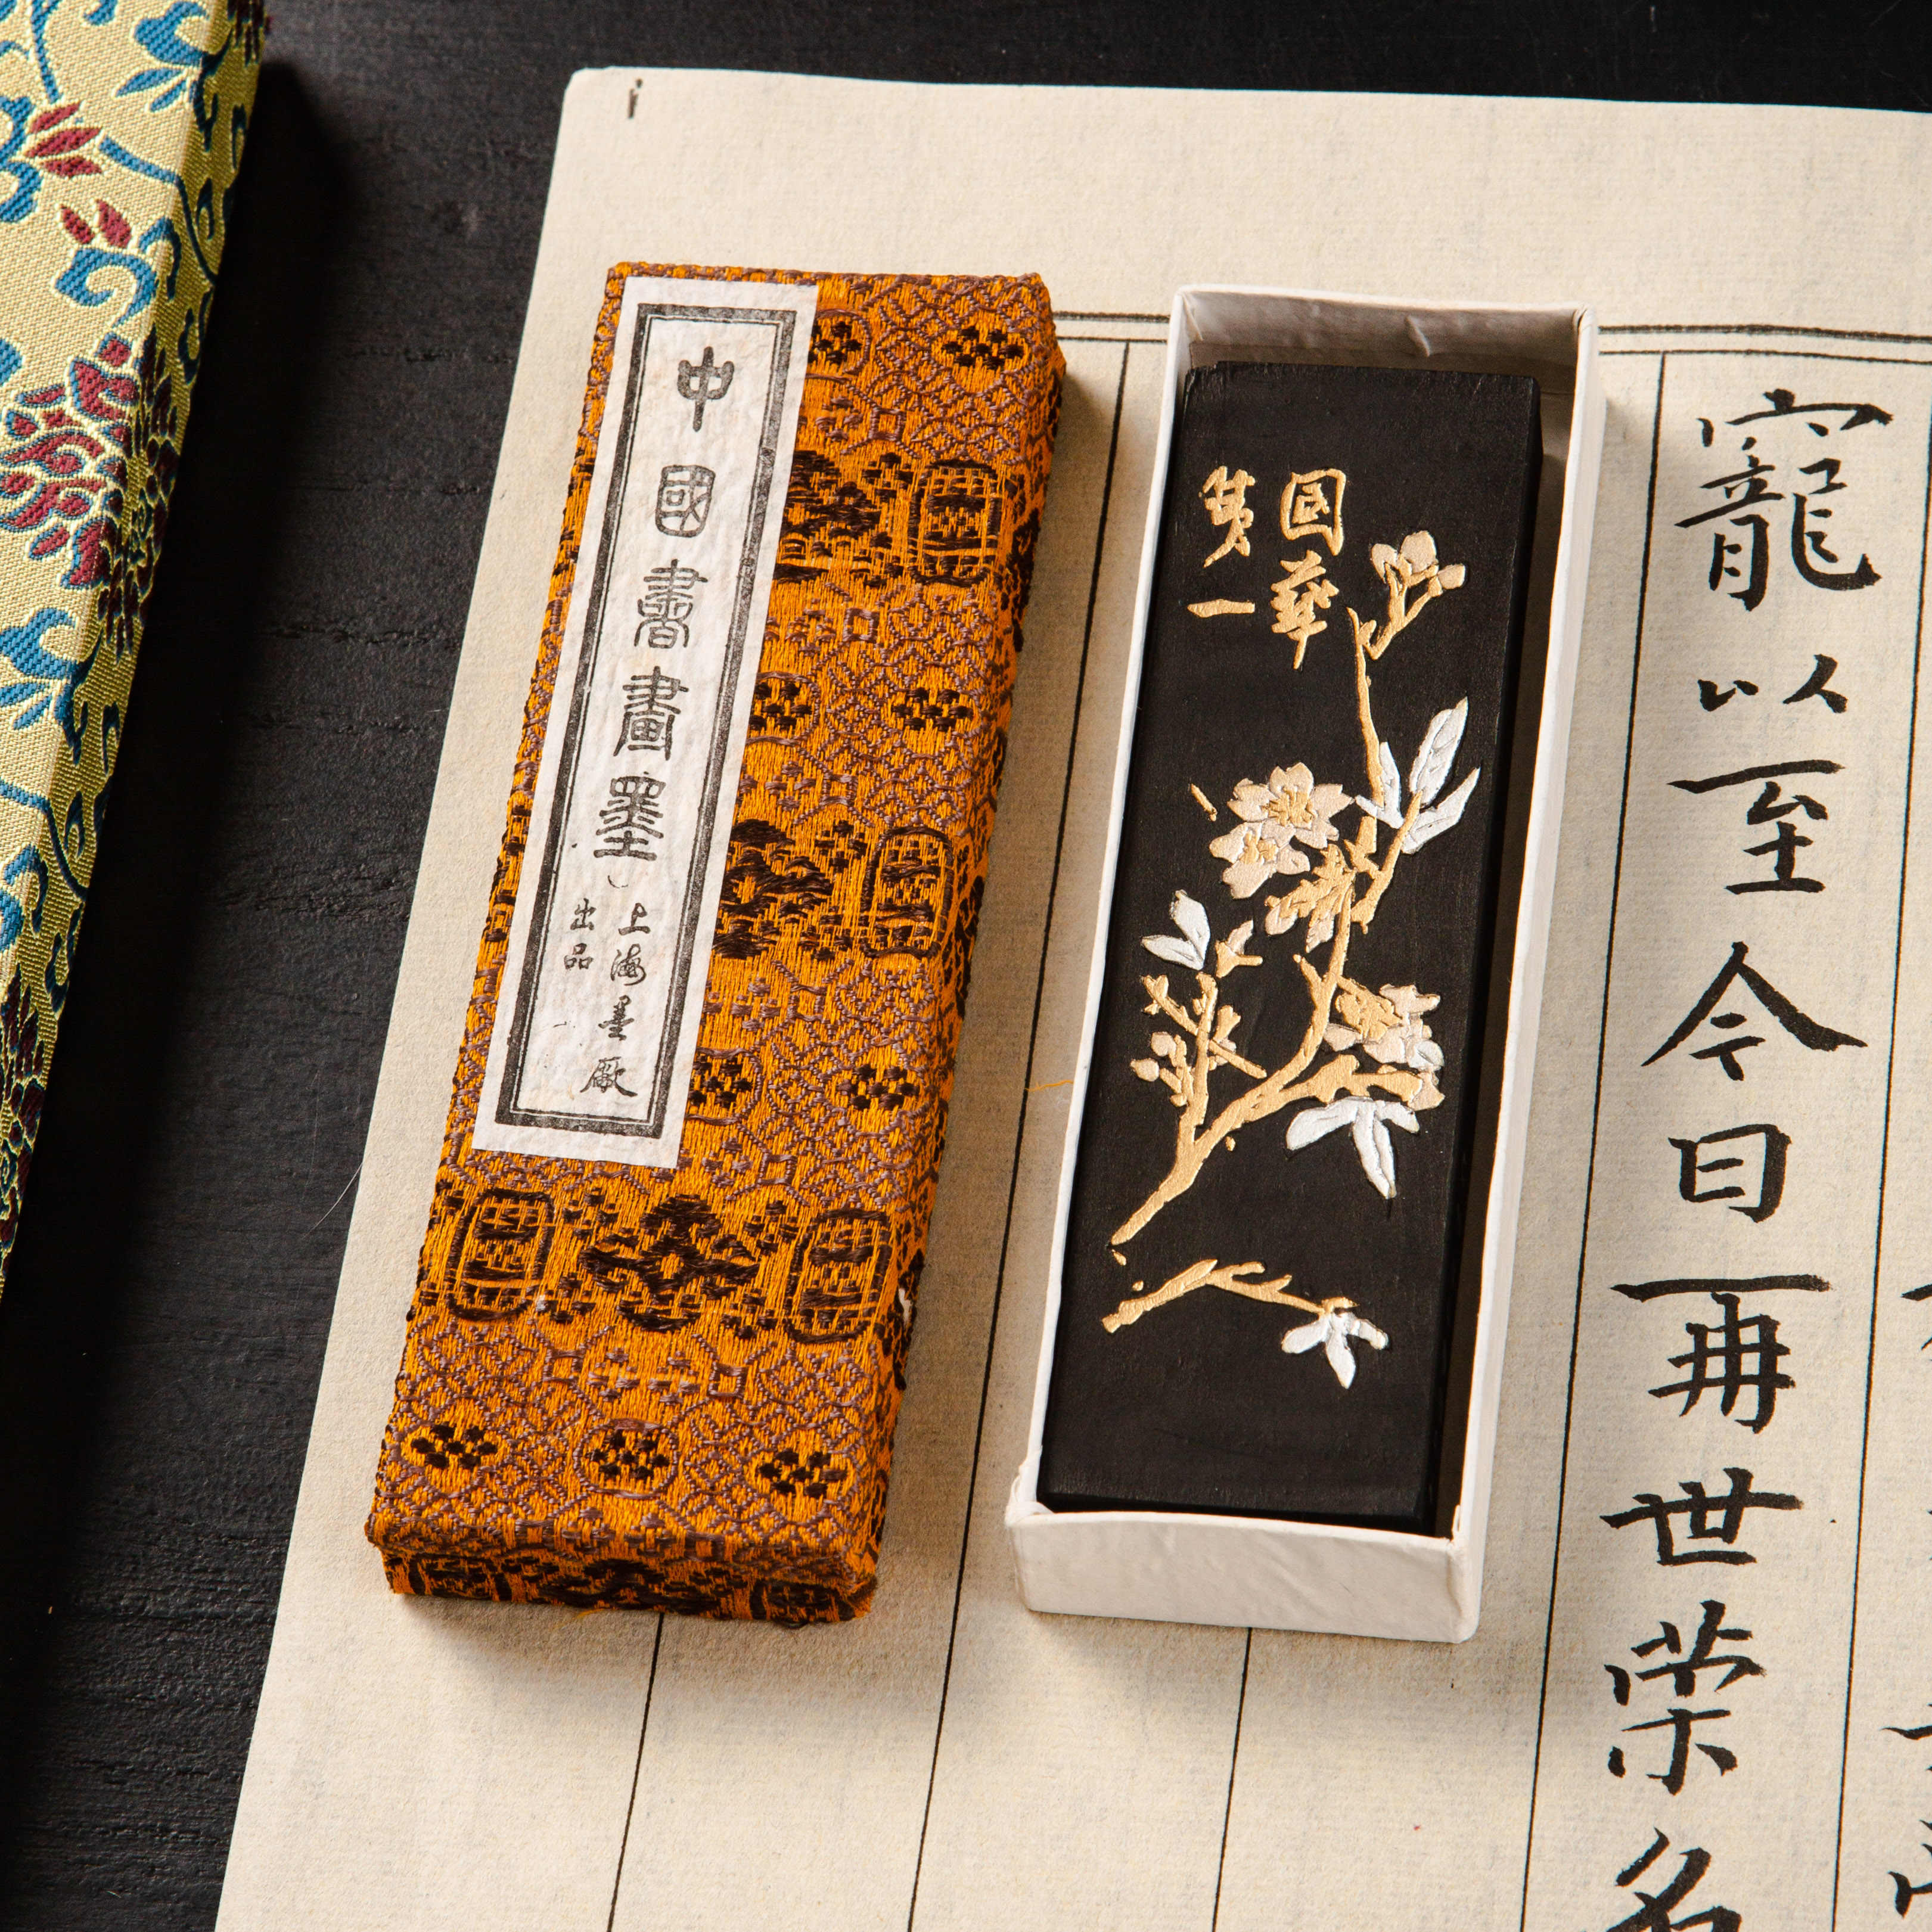 中國書畫墨
上海墨厰
出品
國華
第一
寵以至今日再世荣名